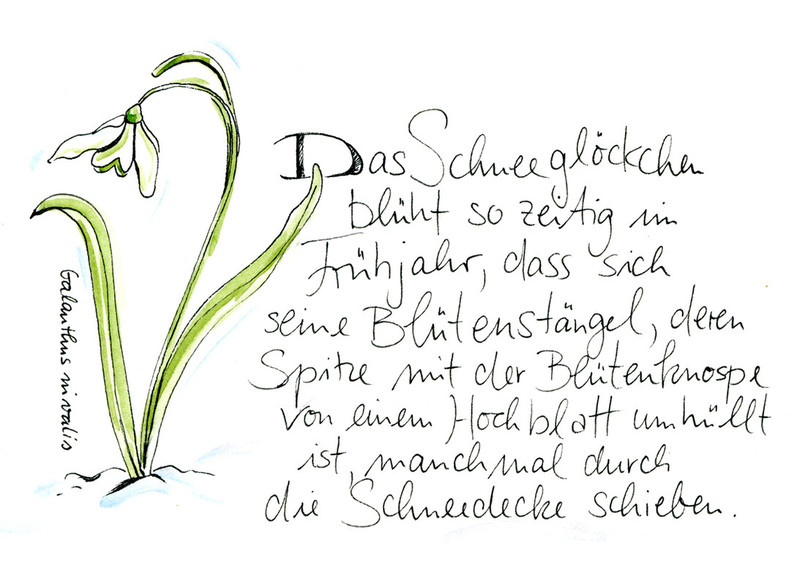 Das Schneeglöckchen
blüht so zeitig im
Frühjahr, dass sich
seine Blütenstängel, deren
Spitze mit der Blütenknospe
von einem Hochblatt umhüllt
ist, manchmal durch
die Schneedecke schieben.
Galanthus nivalis